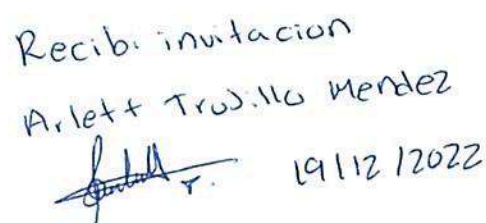 Recibi invitacion
Arlett Trujillo Mendez
19/12/2022